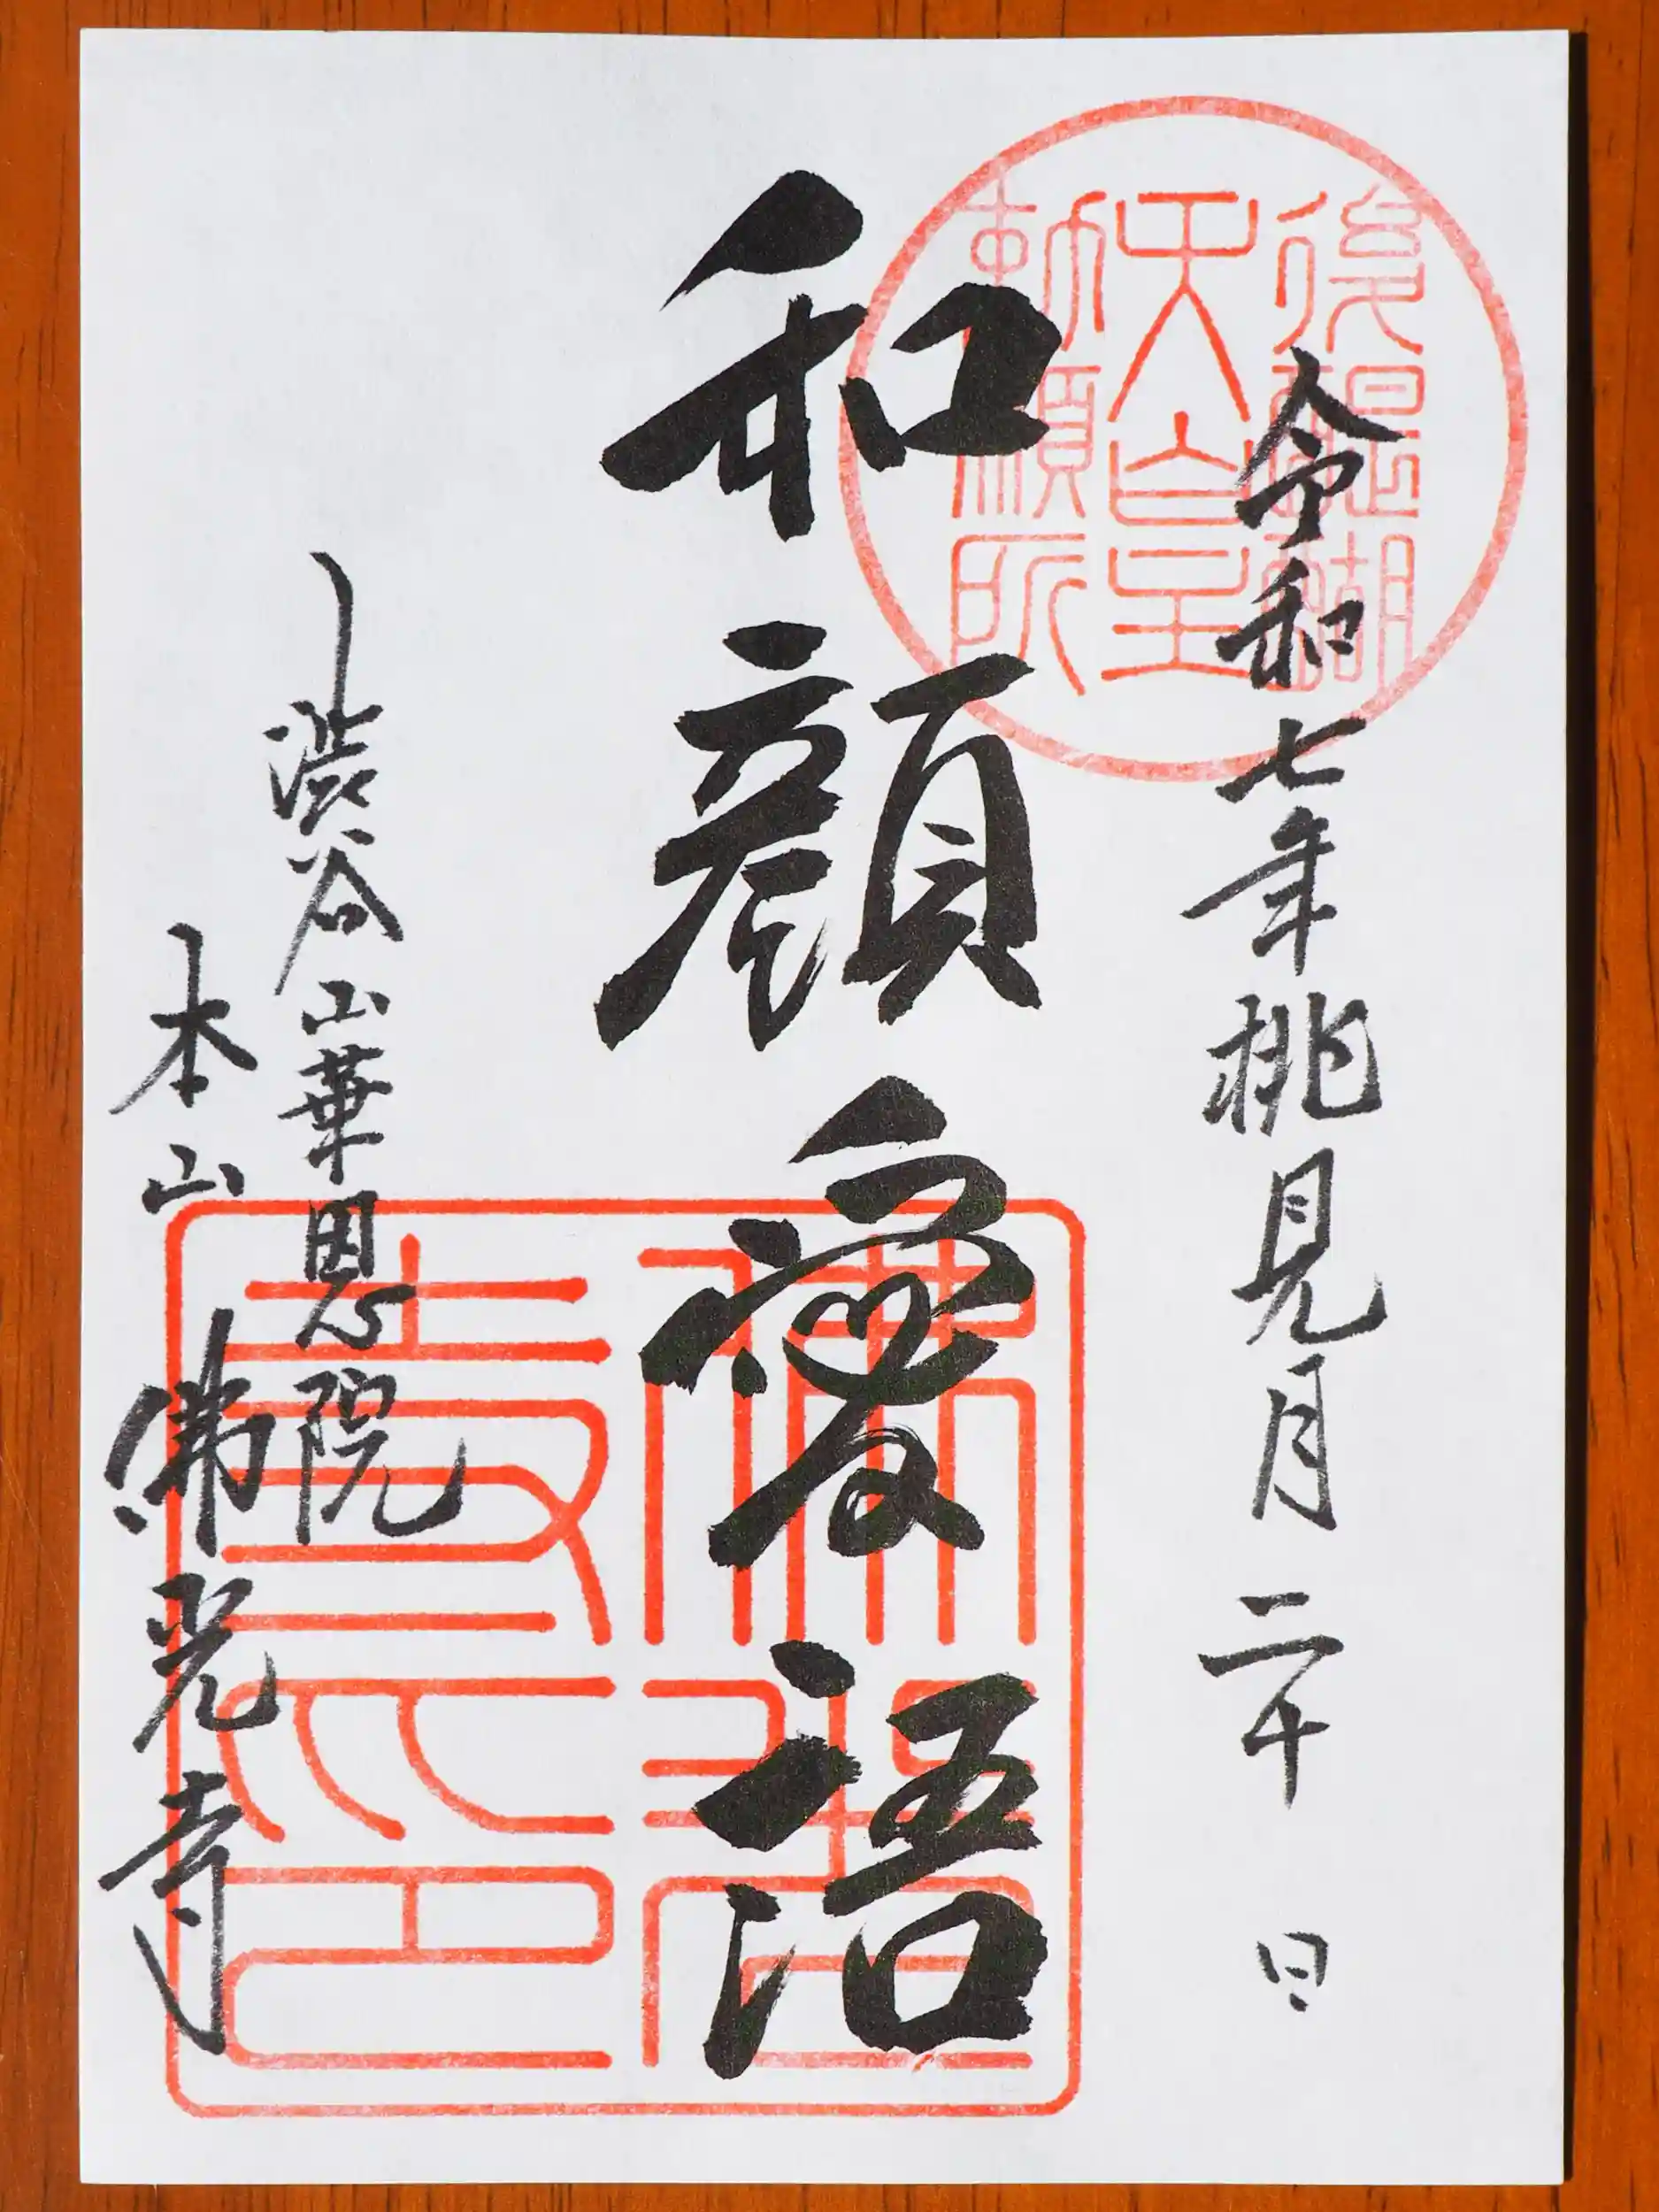 後醍醐
天皇
勅願所
令和七年桃見月二十日
和顔愛語
渋谷山華恩院
本山 佛光寺